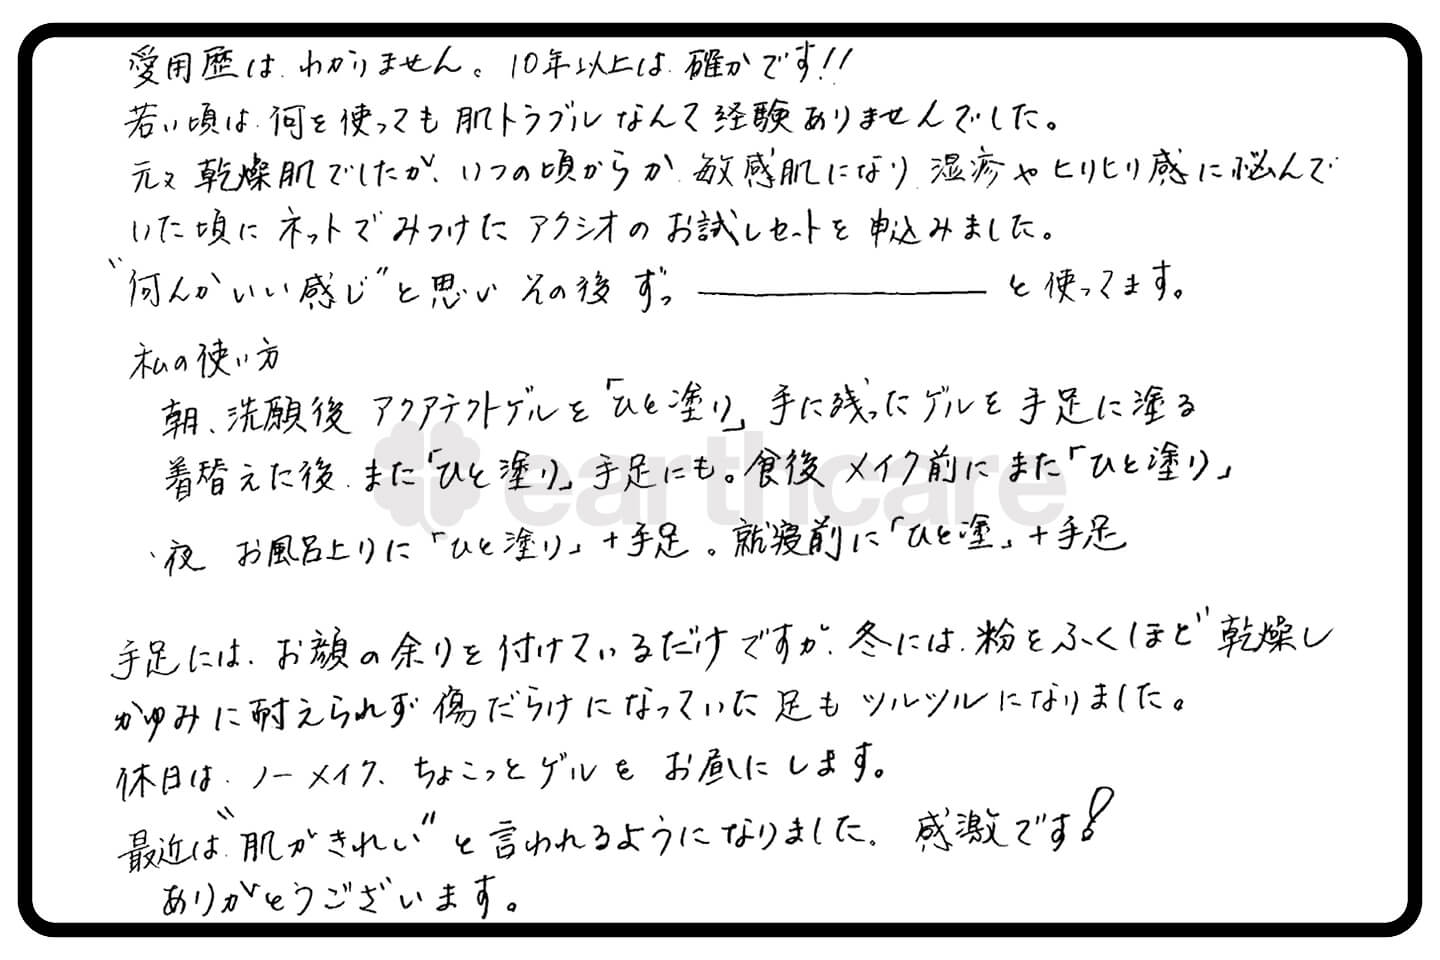 愛用歴は、わかりません。10年以上は、確かです!!
若い頃は、何を使っても肌トラブルなんて経験ありませんでした。
元々乾燥肌でしたが、いつの頃からか、敏感肌になり、湿疹やヒリヒリ感に悩んで
いた頃に ネットでみつけた アクシオの お試しセットを申込みました。
“何んかいい感じ”と思い その後 ずっ————と使ってます。
私の使い方
朝、洗顔後 アクアテクトゲルを「ひと塗り」手に残ったゲルを手足に塗る
着替えた後、また「ひと塗り」手足にも。食後 メイク前に また「ひと塗り」
・夜 お風呂上りに「ひと塗り」+手足。就寝前に「ひと塗」+手足
earthcare
手足には、お顔の余りを付けているだけですが、冬には、粉をふくほど乾燥し
かゆみに耐えられず傷だらけになっていた足もツルツルになりました。
休日は、ノーメイク、ちょこっとゲルを お昼にします。
最近は、“肌がきれい”と言われるようになりました。感激です!
ありがとうございます。